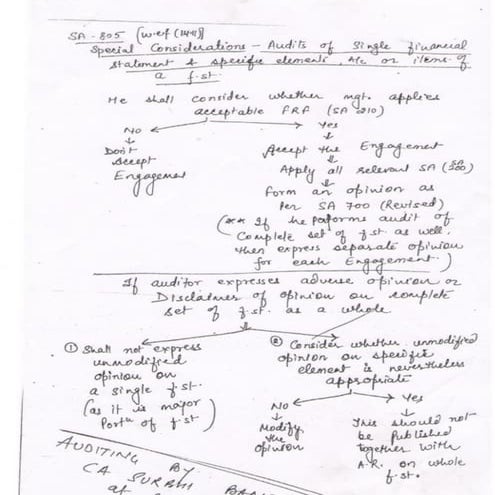 SA-805 (w.e.f (1/4/11)]
Special Considerations - Audits of Single financial
statement & specific elements, A/c or items of
a f.st.
He shall consider whether mgt. applies
acceptable FRF (SA 210)
No
Yes
Don't
Accept
Engagement
Accept the Engagement
Apply all relevant SA (SA 200)
Form an opinion as
Per SA 700 (Revised)
(** If he performs audit of
Complete set of f.st as well,
then express separate opinion
for each Engagement.)
If auditor expresses adverse opinion or
Disclaimer of opinion on complete
set of f.st. as a whole
① Shall not express
unmodified
opinion on
a single f.st.
(as it is major
Portn of f.st)
② Consider whether unmodified
opinion on specific
element is nevertheless
appropriate
No
Yes
Modify
the
opinion
This should not
be Published
together with
A.R. on whole
f.st.
AUDITING BY
CA SURBHI
at